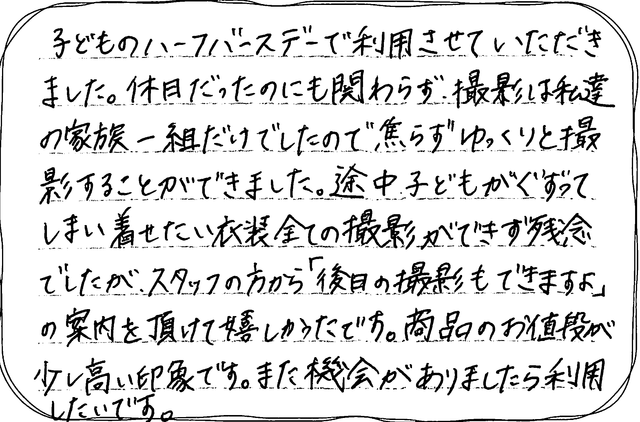 子どものハーフバースデーで利用させていただき
ました。休日だったのにも関わらず、撮影は私達
の家族一組だけでしたので焦らずゆっくりと撮
影することができました。途中子どもがぐずって
しまい着せたい衣装全ての撮影ができず残念
でしたが、スタッフの方から「後日の撮影もできますよ」
の案内を頂けて嬉しかったです。商品のお値段が
少し高い印象です。また機会がありましたら利用
したいです。